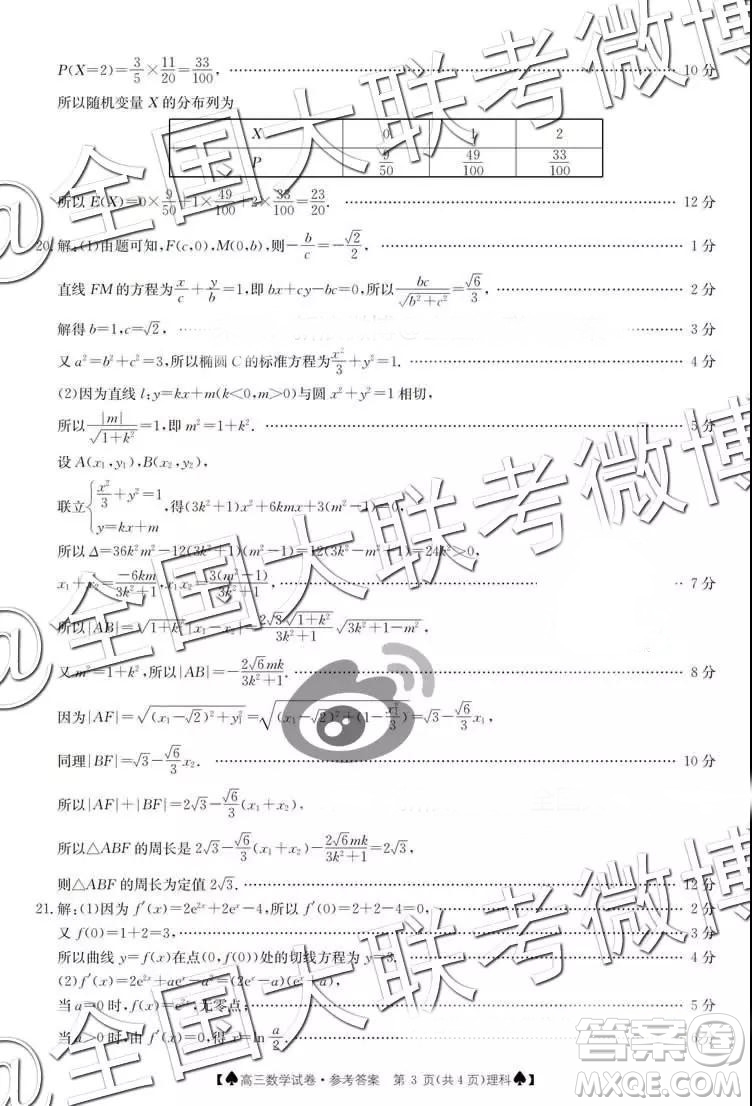 P(X=2)=3/5×11/20=33/100. 10分
所以随机变量 X 的分布列为
X 0 1 2
P 9/50 49/100 33/100
所以 E(X)=0×9/50+1×49/100+2×33/100=23/20. 12分
20. 解:(1)由题可知,F(c,0),M(0,b),则-b/c=-√2/2, 1分
直线 FM 的方程为x/c+y/b=1,即 bx+cy-bc=0,所以bc/√(b²+c²)=√6/3, 2分
解得 b=1,c=√2, 3分
又 a²=b²+c²=3,所以椭圆 C 的标准方程为x²/3+y²=1. 4分
(2)因为直线 l:y=kx+m(k<0,m>0)与圆 x²+y²=1 相切,
所以|m|/√(1+k²)=1,即 m²=1+k². 5分
设 A(x₁,y₁),B(x₂,y₂),
联立{x²/3+y²=1 y=kx+m,得(3k²+1)x²+6kmx+3(m²-1)=0,
所以 Δ=36k²m²-12(3k²+1)(m²-1)=12(3k²-m²+1)=24k²>0,
x₁+x₂=-6km/(3k²+1),x₁x₂=3(m²-1)/(3k²+1), 7分
所以|AB|=√(1+k²)|x₁-x₂|=2√3√(1+k²)/(3k²+1)√(3k²+1-m²),
又 m²=1+k²,所以|AB|=-2√6mk/(3k²+1). 8分
因为|AF|=√((x₁-√2)²+y₁²)=√((x₁-√2)²+(1-x₁²/3))=√3-√6/3x₁,
同理|BF|=√3-√6/3x₂. 10分
所以|AF|+|BF|=2√3-√6/3(x₁+x₂),
所以△ABF 的周长是 2√3-√6/3(x₁+x₂)-2√6mk/(3k²+1)=2√3,
则△ABF 的周长为定值 2√3. 12分
21. 解:(1)因为 f′(x)=2e²ˣ+2eˣ-4,所以 f′(0)=2+2-4=0, 2分
又 f(0)=1+2=3,
所以曲线 y=f(x)在点(0,f(0))处的切线方程为 y=3.
(2)f′(x)=2e²ˣ+aeˣ-a²=(2eˣ-a)(eˣ+a),
当 a=0 时,f(x)=e²ˣ,无零点; 5分
当 a>0 时,由 f′(x)=0,得 x=ln a/2.
【♠高三数学试卷·参考答案 第 3 页(共 4 页)理科♠】
@全国大联考微博
@全国大联考微博
答案圈